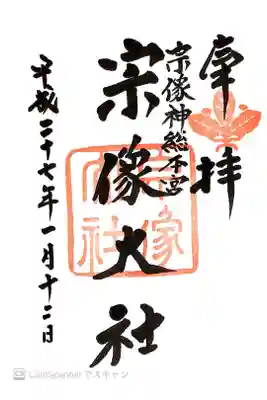 奉拝
宗像神総本宮
宗像大社
平成二十七年一月十二日
CamScanner でスキャン